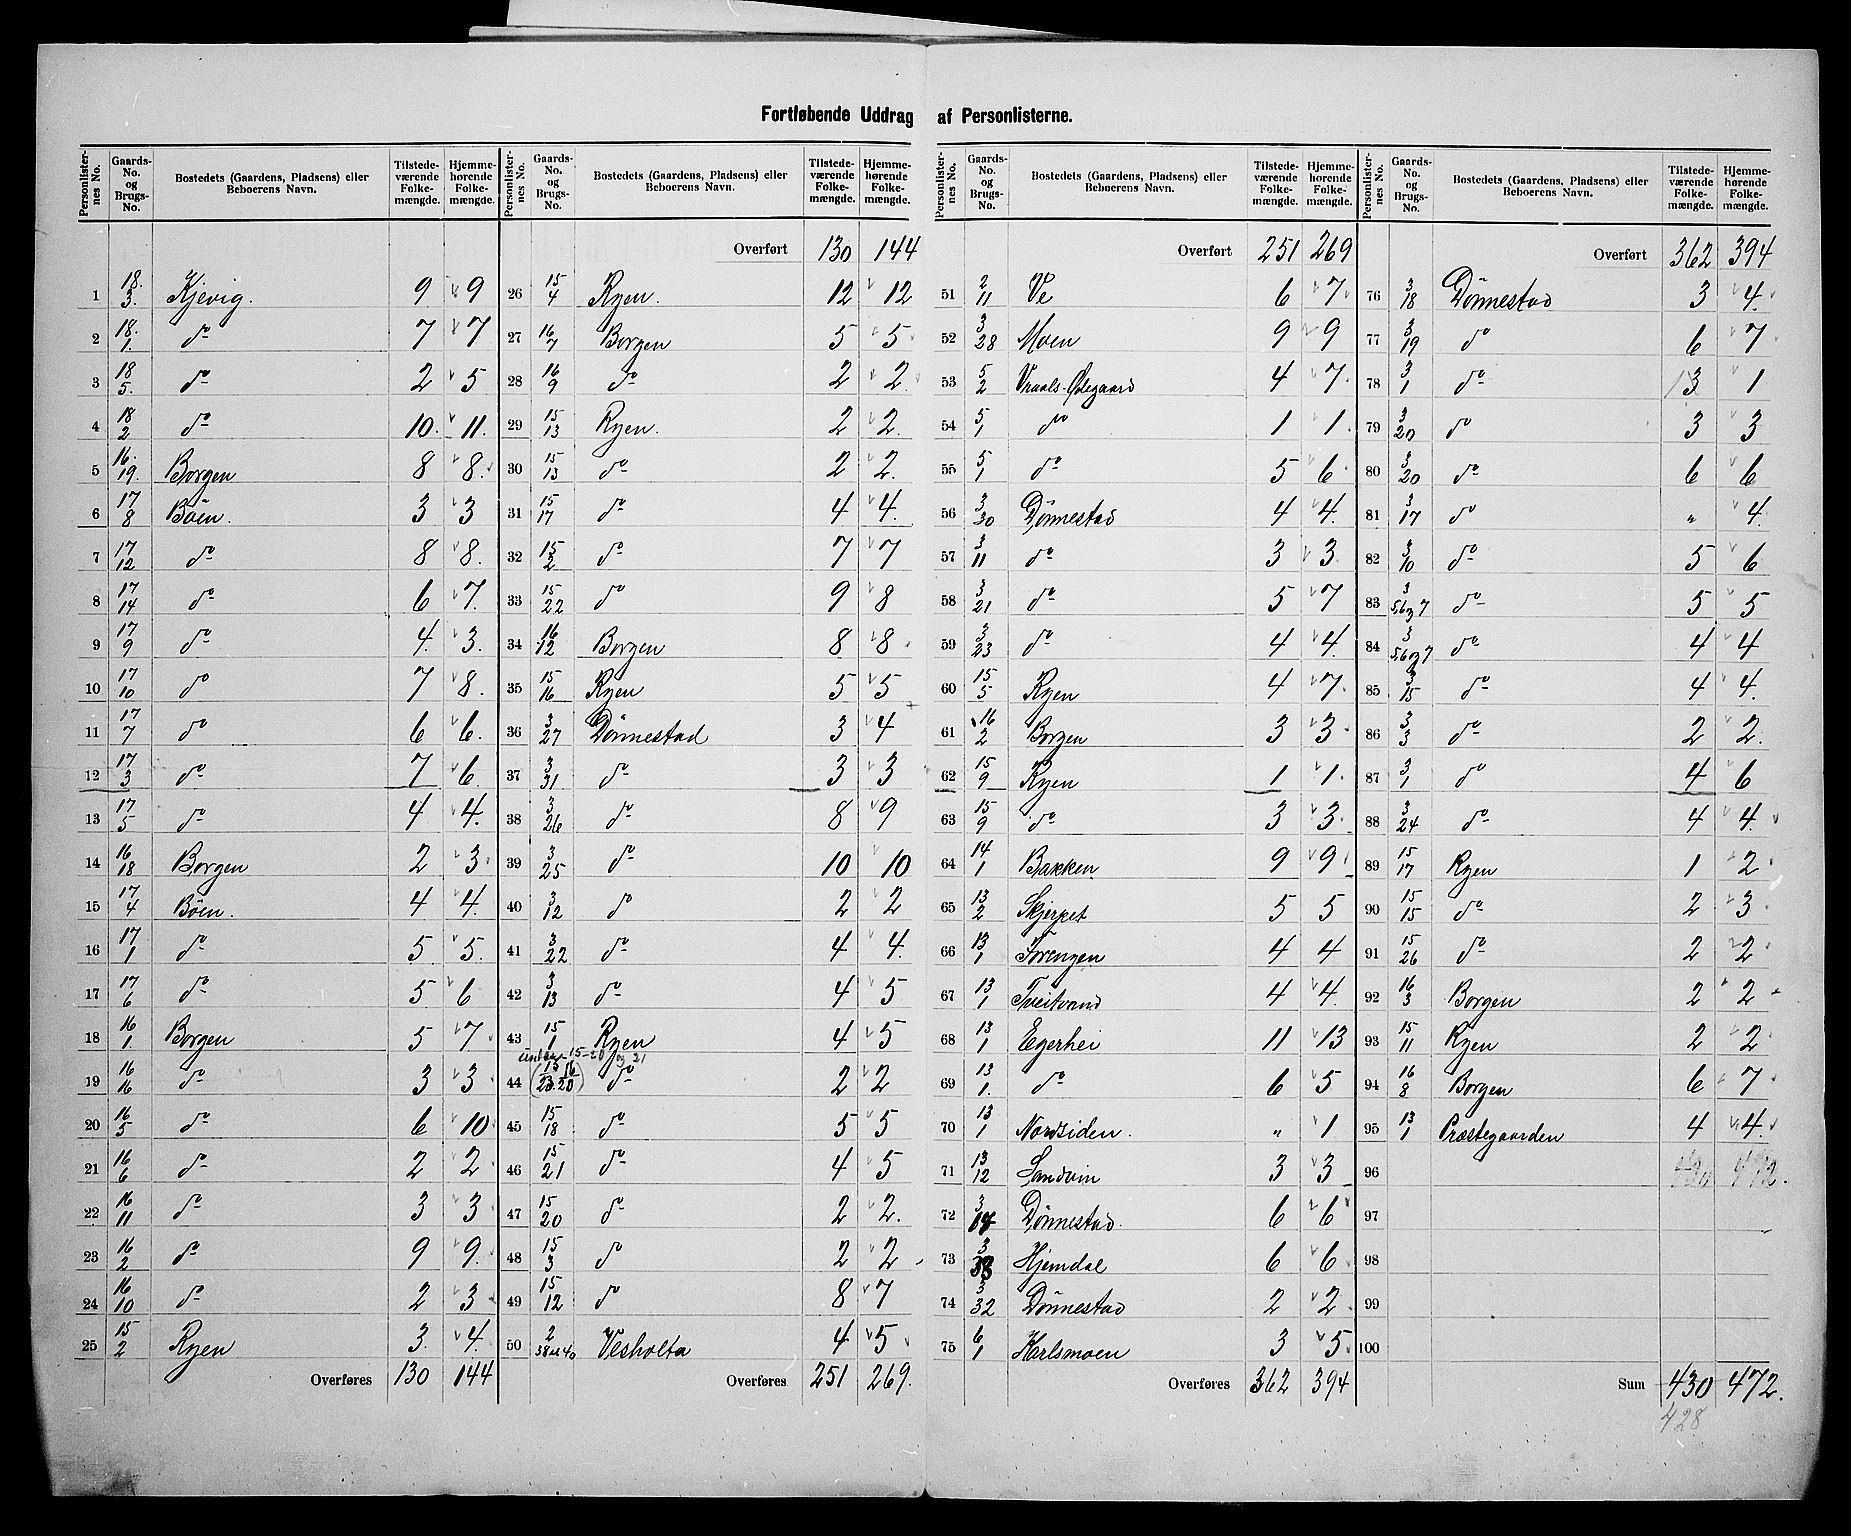 Fortløbende Uddrag af Personlisterne.
Personlister-nes No. | Gaards-No. og Brugs-No. | Bostedets (Gaardens, Pladsens) eller Beboerens Navn. | Tilstede-værende Folke-mængde. | Hjemme-hørende Folke-mængde.
1 | 18./3. | Kjevig. | 9 | 9
2 | 18./1. | do | 7 | 7
3 | 18/5. | do | 2 | 5
4 | 18/2 | do | 10. | 11.
5 | 16./19. | Borgen | 8 | 8.
6 | 17/8 | Böen. | 3 | 3
7 | 17/12 | do | 8 | 8.
8 | 17/14 | do | 6 | 7.
9 | 17/9 | do | 4. | 3.
10 | 17/10 | do | 7 | 8.
11 | 17/7 | do | 6 | 6.
12 | 17/3 | do | 7 | 6.
13 | 17/5 | do | 4 | 4.
14 | 16/18 | Borgen | 2 | 3
15 | 17/4 | Böen. | 4 | 4.
16 | 17/1 | do | 5 | 5.
17 | 17/6 | do | 5 | 6
18 | 16/1. | Borgen | 5 | 7
19 | 16/16 | do | 3 | 3
20 | 16/5 | do | 6 | 10
21 | 16/6 | do | 2 | 2
22 | 16/11 | do | 3 | 3
23 | 16/2 | do | 9 | 9.
24 | 16/10 | do | 2 | 3
25 | 15/2 | Ryen | 3. | 4.
Overføres 130 144
Personlister-nes No. | Gaards-No. og Brugs-No. | Bostedets (Gaardens, Pladsens) eller Beboerens Navn. | Tilstede-værende Folke-mængde. | Hjemme-hørende Folke-mængde.
Overført 130 144
26 | 15/4 | Ryen. | 12 | 12
27 | 16/7 | Borgen | 5 | 5
28 | 16/9 | do | 2 | 2.
29 | 15/13 | Ryen. | 2 | 2.
30 | 15/13 | do | 2 | 2.
31 | 15/17 | do | 4 | 4.
32 | 15/2 | do | 7 | 7
33 | 15/22 | do | 9 | 8
34 | 16/12 | Borgen | 8 | 8
35 | 15/16 | Ryen | 5 | 5
36 | 3/27 | Dönnestad | 3 | 4
37 | 3/31 | do | 3 | 3
38 | 3/26 | do | 8 | 9
39 | 3/25 | do | 10 | 10
40 | 3/12 | do | 2 | 2
41 | 3/22 | do | 4 | 4.
42 | 3/13 | do | 4 | 5
43 | 15/1 | Ryen | 4 | 5
15-20 og 21
44 | do | 2 | 2
45 | 15/18 | do | 5 | 5
46 | 15/21 | do | 4 | 5
47 | 15/20 | do | 2 | 2.
48 | 15/3 | do | 2 | 2
49 | 15/12 | do | 8 | 7
50 | 2/38 40 | Vesholta | 4 | 5
Overføres 251 269.
Personlister-nes No. | Gaards-No. og Brugs-No. | Bostedets (Gaardens, Pladsens) eller Beboerens Navn. | Tilstede-værende Folke-mængde. | Hjemme-hørende Folke-mængde.
Overført 251 269
51 | 2/11 | Ve | 6 | 7
52 | 3/28 | Moen | 9 | 9
53 | 5/2 | Vraals-Ødegaard | 4 | 7.
54 | 5/1 | do | 1 | 1.
55 | 5/1 | do | 5 | 6
56 | 3/30 | Dönnestad | 4 | 4.
57 | 3/11 | do | 3 | 3
58 | 3/21 | do | 5 | 7
59 | 3/23 | do | 4 | 4.
60 | 15/5 | Ryen | 4 | 7
61 | 16/2 | Borgen | 3 | 3
62 | 15/9 | Ryen | 1 | 1.
63 | 15/9 | do | 3 | 3
64 | 14/1 | Bakken | 9 | 9
65 | 13/2 | Skjerpet | 5 | 5
66 | 13/1 | Torengen | 4 | 4
67 | 13/1 | Tveitvand | 4 | 4.
68 | 13/1 | Egerhei | 11 | 13
69 | 13/1. | do | 6 | 5
70 | 13/1 | Nordsiden. | " | 1
71 | 13/12 | Sandvin | 3 | 3
72 | 3/14 | Dönnestad. | 6 | 6
73 | 3/33 | Hjemdal | 6 | 6
74 | 3/32 | Dönnestad | 2 | 2.
75 | 6/1 | Karlsmoen | 3 | 5
Overføres 362 394
Personlister-nes No. | Gaards-No. og Brugs-No. | Bostedets (Gaardens, Pladsens) eller Beboerens Navn. | Tilstede-værende Folke-mængde. | Hjemme-hørende Folke-mængde.
Overført 362 394
76 | 3/18 | Dönnestad | 3 | 4.
77 | 3/19 | do | 6 | 7
78 | 3/1 | do | 3 | 1
79 | 3/20 | do | 3 | 3
80 | 3/20 | do | 6 | 6
81 | 3/17 | do | " | 4.
82 | 3/10 | do | 5 | 6
83 | 3/5,6 og 7 | do | 5 | 5
84 | 3/5,6 og 7 | do | 4 | 4
85 | 3/15 | do | 4 | 4.
86 | 3/3 | do | 2 | 2.
87 | 3/1 | do | 4 | 6
88 | 3/24 | do | 4 | 4.
89 | 15/17 | Ryen | 1 | 2
90 | 15/15 | do | 2 | 3
91 | 15/26 | do | 2 | 2
92 | 16/3 | Borgen | 2 | 2
93 | 15/11 | Ryen | 2 | 2
94 | 16/8 | Borgen | 6 | 7
95 | 13/1 | Præstegaarden | 4 | 4.
96 | 430 | 472.
97
98
99
100
Sum 430 472.
428